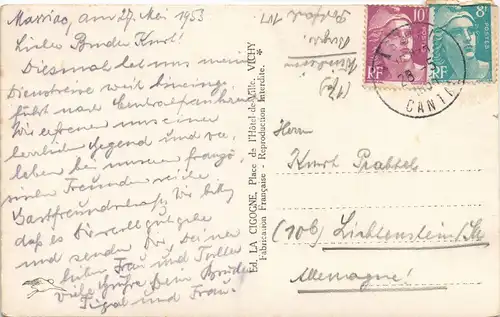 Massiac, am 27. Mei 1953
Lieber Bruder Kurt!
Diesmal hat uns meine
Dienstreise weit hinein ge-
führt nach Centralfrankreich
Wir erfreuen uns einer
herrlich Gegend und er-
leben bei unseren französ-
sischen Freunden viele
Gastfreundschaft. Wir
daß es Dir recht gut gehe
und senden Dir, Deiner
lieben Frau und Tochter
viele Grüße Dein Bruder
und Frau.
Ed. LA CIGOGNE, Place de l'Hôtel-de-Ville, VICHY
Fabrication Française - Reproduction Interdite.
10F
POSTES
RF
8F
POSTES
RF
CANTAL
Herrn
Kurt
(10b) Lichtenstein/Sa
Allemagne!